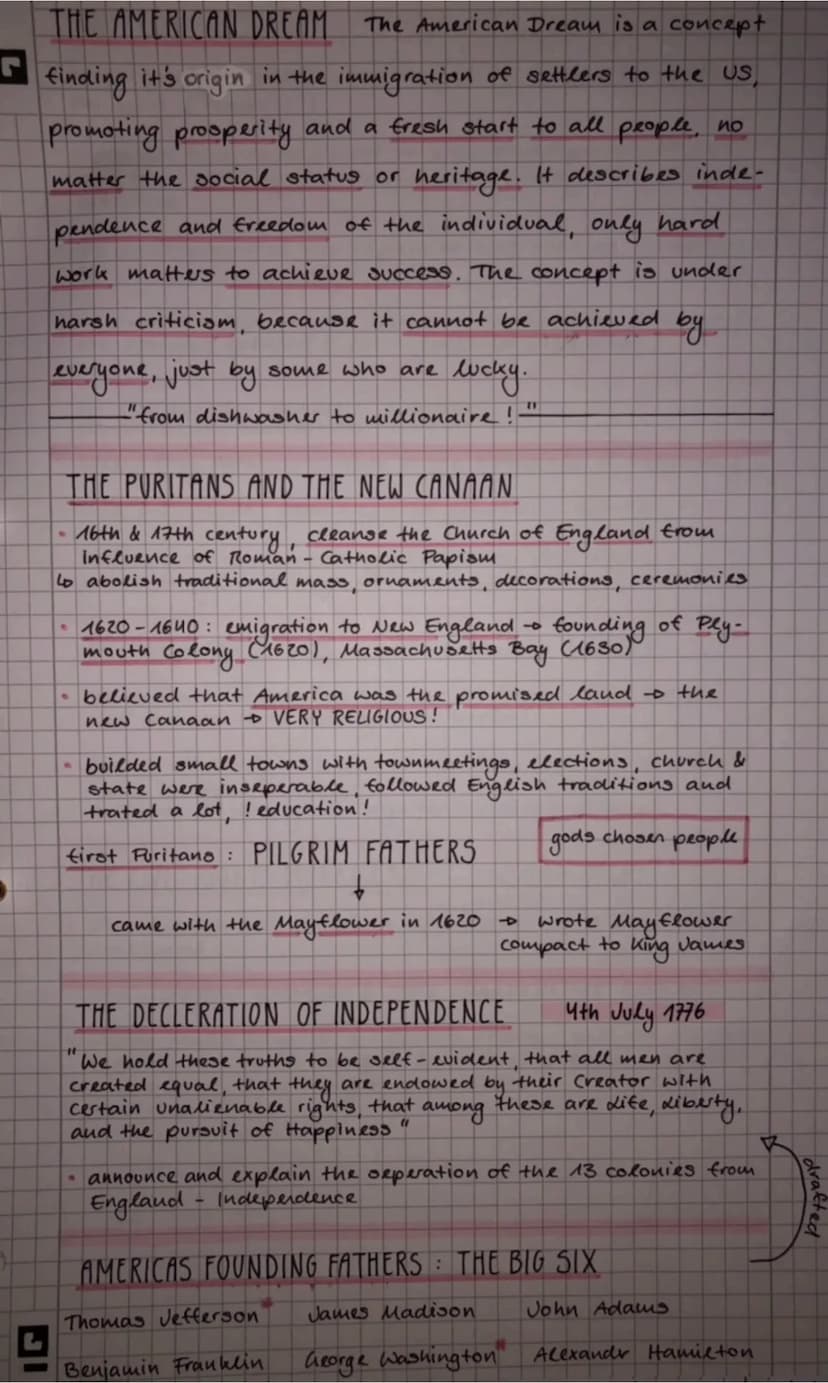 THE AMERICAN DREAM The American Dream is a concept
finding it's origin in the immigration of settlers to the US,
promoting prosperity and a fresh start to all people, no
matter the social status or heritage. It describes inde-
pendence and freedom of the individual, only hard
work matters to achieve success. The concept is under
harsh criticism, because it cannot be achieved by
everyone, just by some who are lucky.
"from dishwasher to millionaire!"
THE PURITANS AND THE NEW CANAAN
• 16th & 17th century, cleanse the Church of England from
influence of Roman-Catholic Papism
↳ abolish traditional mass, ornaments, decorations, ceremonies
• 1620-1640: emigration to New England → founding of Ply-
mouth Colony (1620), Massachusetts Bay (1630)
• believed that America was the promised land → the
new Canaan → VERY RELIGIOUS!
• builded small towns with townmeetings, elections, church &
state were inseperable, followed English traditions and
trated a lot, !education!
gods chosen people
first Puritans: PILGRIM FATHERS
↓
came with the Mayflower in 1620 → wrote Mayflower
compact to King James
THE DECLERATION OF INDEPENDENCE 4th July 1776
"We hold these truths to be self-evident, that all men are
created equal, that they are endowed by their Creator with
certain unalienable rights, that among these are Life, Liberty,
and the pursuit of Happiness"
• announce and explain the seperation of the 13 colonies from
England - Independence
drafted
AMERICAS FOUNDING FATHERS: THE BIG SIX
Thomas Jefferson* James Madison John Adams
Benjamin Franklin George Washington* Alexandr Hamilton